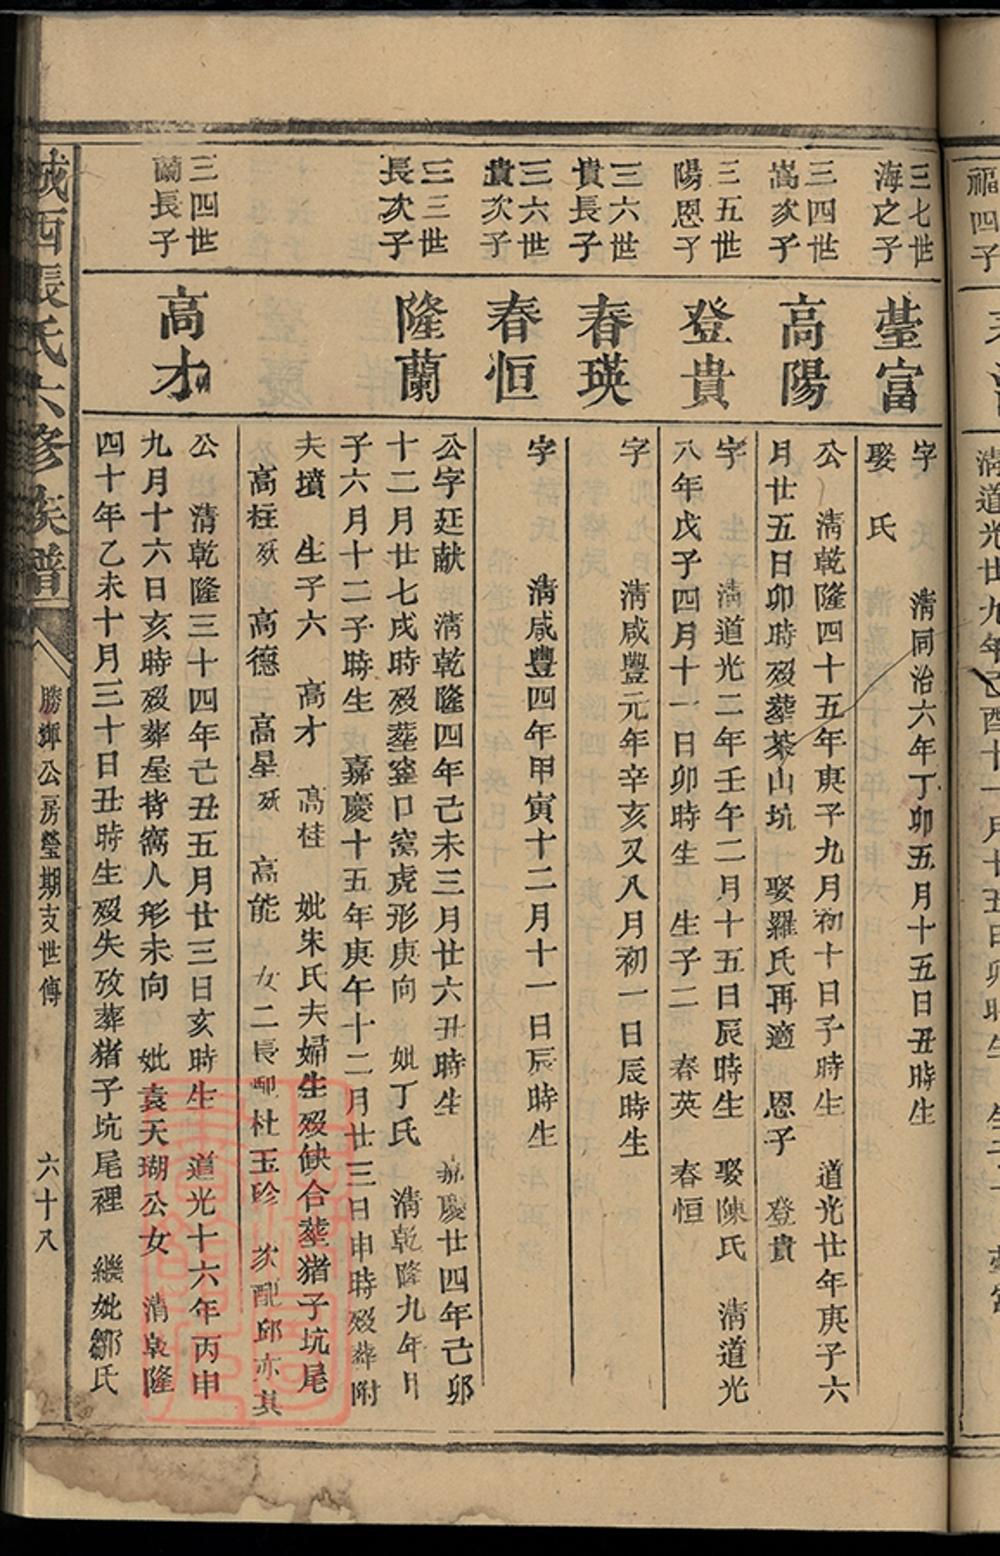 福四子
清道光廿九年己酉十一月廿五日卯時生
三七世
海之子
薹富
字 清同治六年丁卯五月十五日丑時生
娶 氏
三四世
嵩次子
高陽
公 清乾隆四十五年庚子九月初十日子時生 道光廿年庚子六
月廿五日卯時歿葬茶山坑 娶羅氏再適 恩子 登貴
三五世
陽恩子
登貴
字 清道光二年壬午二月十五日辰時生 娶陳氏 清道光
八年戊子四月十一日卯時生 生子二 春英 春恒
三六世
貴長子
春瑛
字 清咸豐元年辛亥又八月初一日辰時生
三六世
貴次子
春恒
字 清咸豐四年甲寅十二月十一日辰時生
三三世
長次子
隆蘭
公字廷献 清乾隆四年己未三月廿六丑時生 嘉慶廿四年己卯
十二月廿七戌時歿葬窰口窩虎形庚向 妣丁氏 清乾隆九年甲
子六月十二子時生 嘉慶十五年庚午十二月廿三日申時歿葬附
夫墳 生子六 高才 高桂 妣朱氏夫婦生歿缺合葬猪子坑尾
高柱殀 高德 高星殀 高能 女二長配杜玉珍 次配邱亦其
三四世
蘭長子
高才
公 清乾隆三十四年己丑五月廿三日亥時生 道光十六年丙申
九月十六日亥時歿葬屋背窩人形未向 妣袁天瑚公女 清乾隆
四十年乙未十月三十日丑時生歿失攷葬猪子坑尾裡 繼妣鄒氏
城西張氏六修族譜
勝輝公房瑩期支世傳
六十八